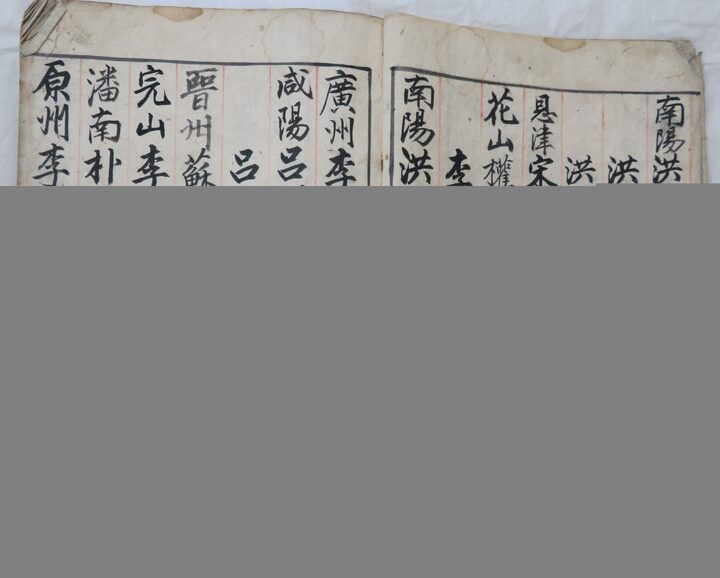 南陽洪
洪
洪
恩津宋
花山權
李
南陽洪
廣州李
咸陽呂
呂
晋州蘇
完山李
潘南朴
原州李